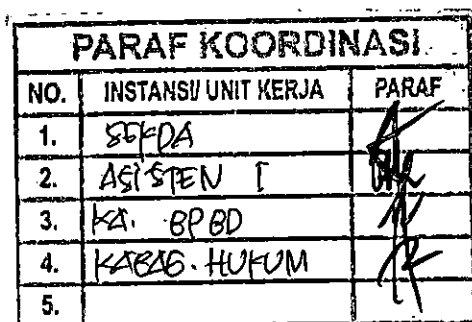 PARAF KOORDINASI
NO. INSTANSI/ UNIT KERJA PARAF
1. SEKDA
2. ASISTEN I
3. KA. BPBD
4. KABAG. HUKUM
5.